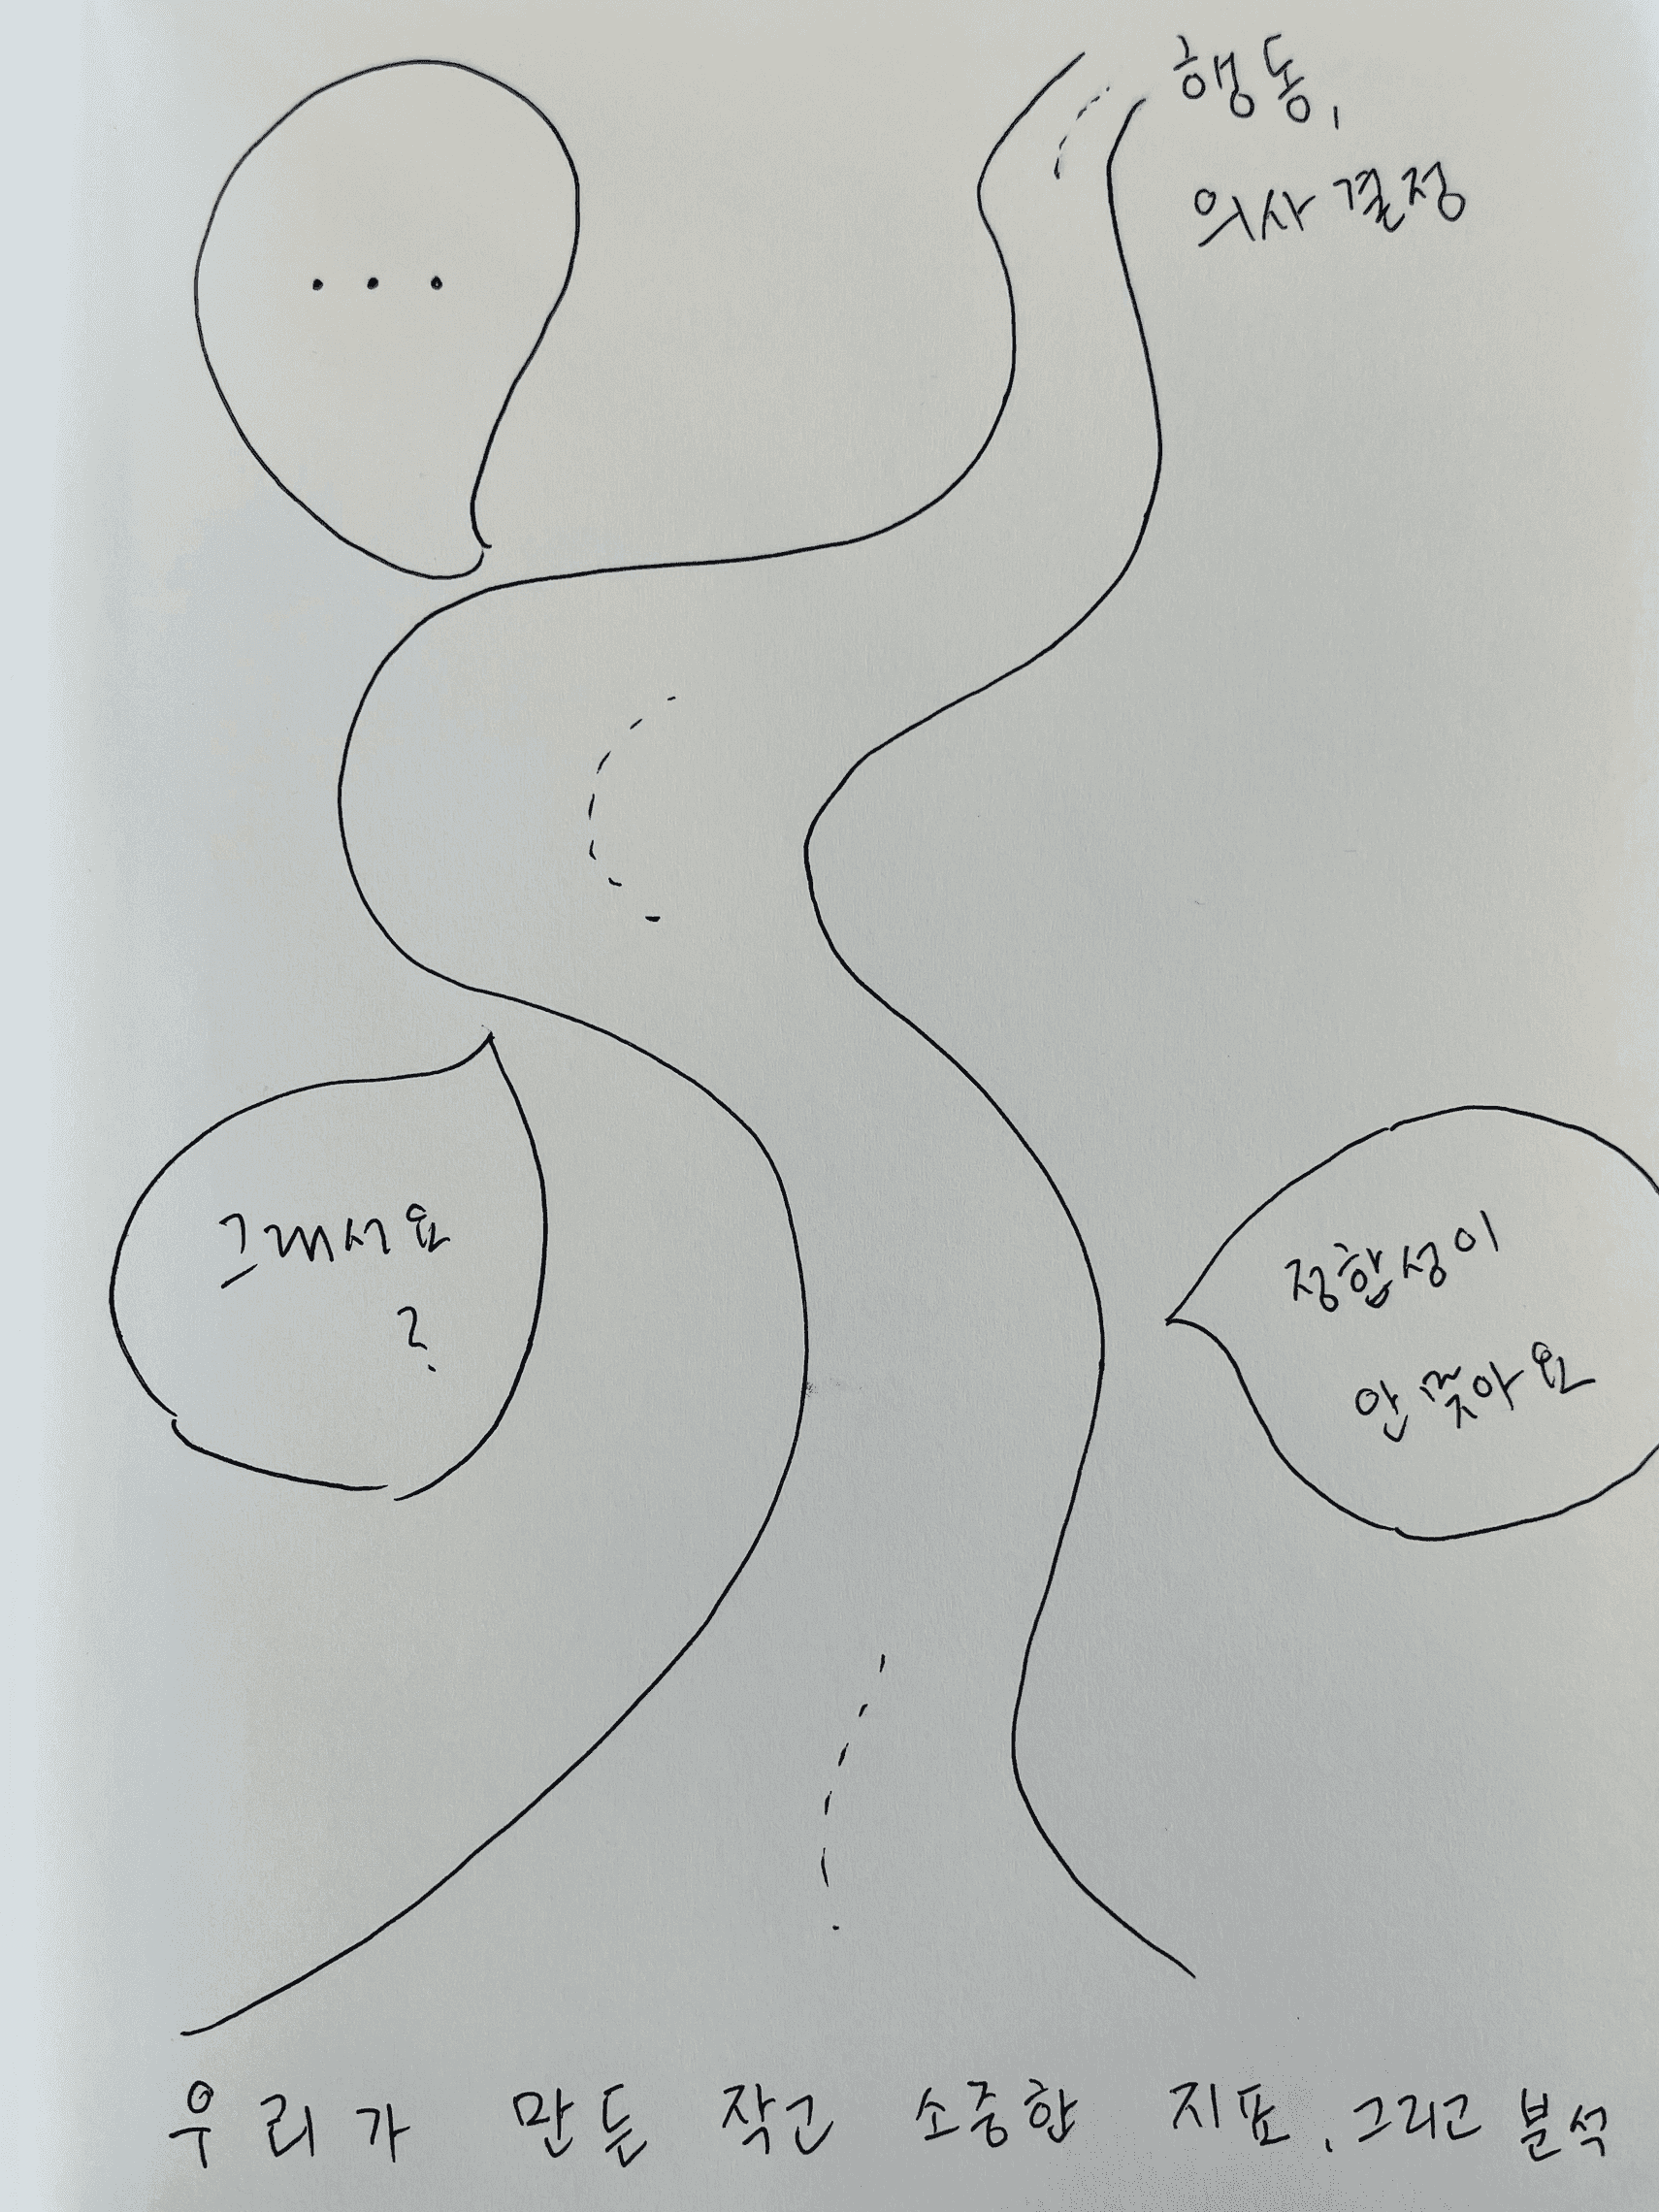 행동,
의사결정
...
그래서요
?
정합성이
안 맞아요
우리가 만든 작고 소중한 지표, 그리고 분석